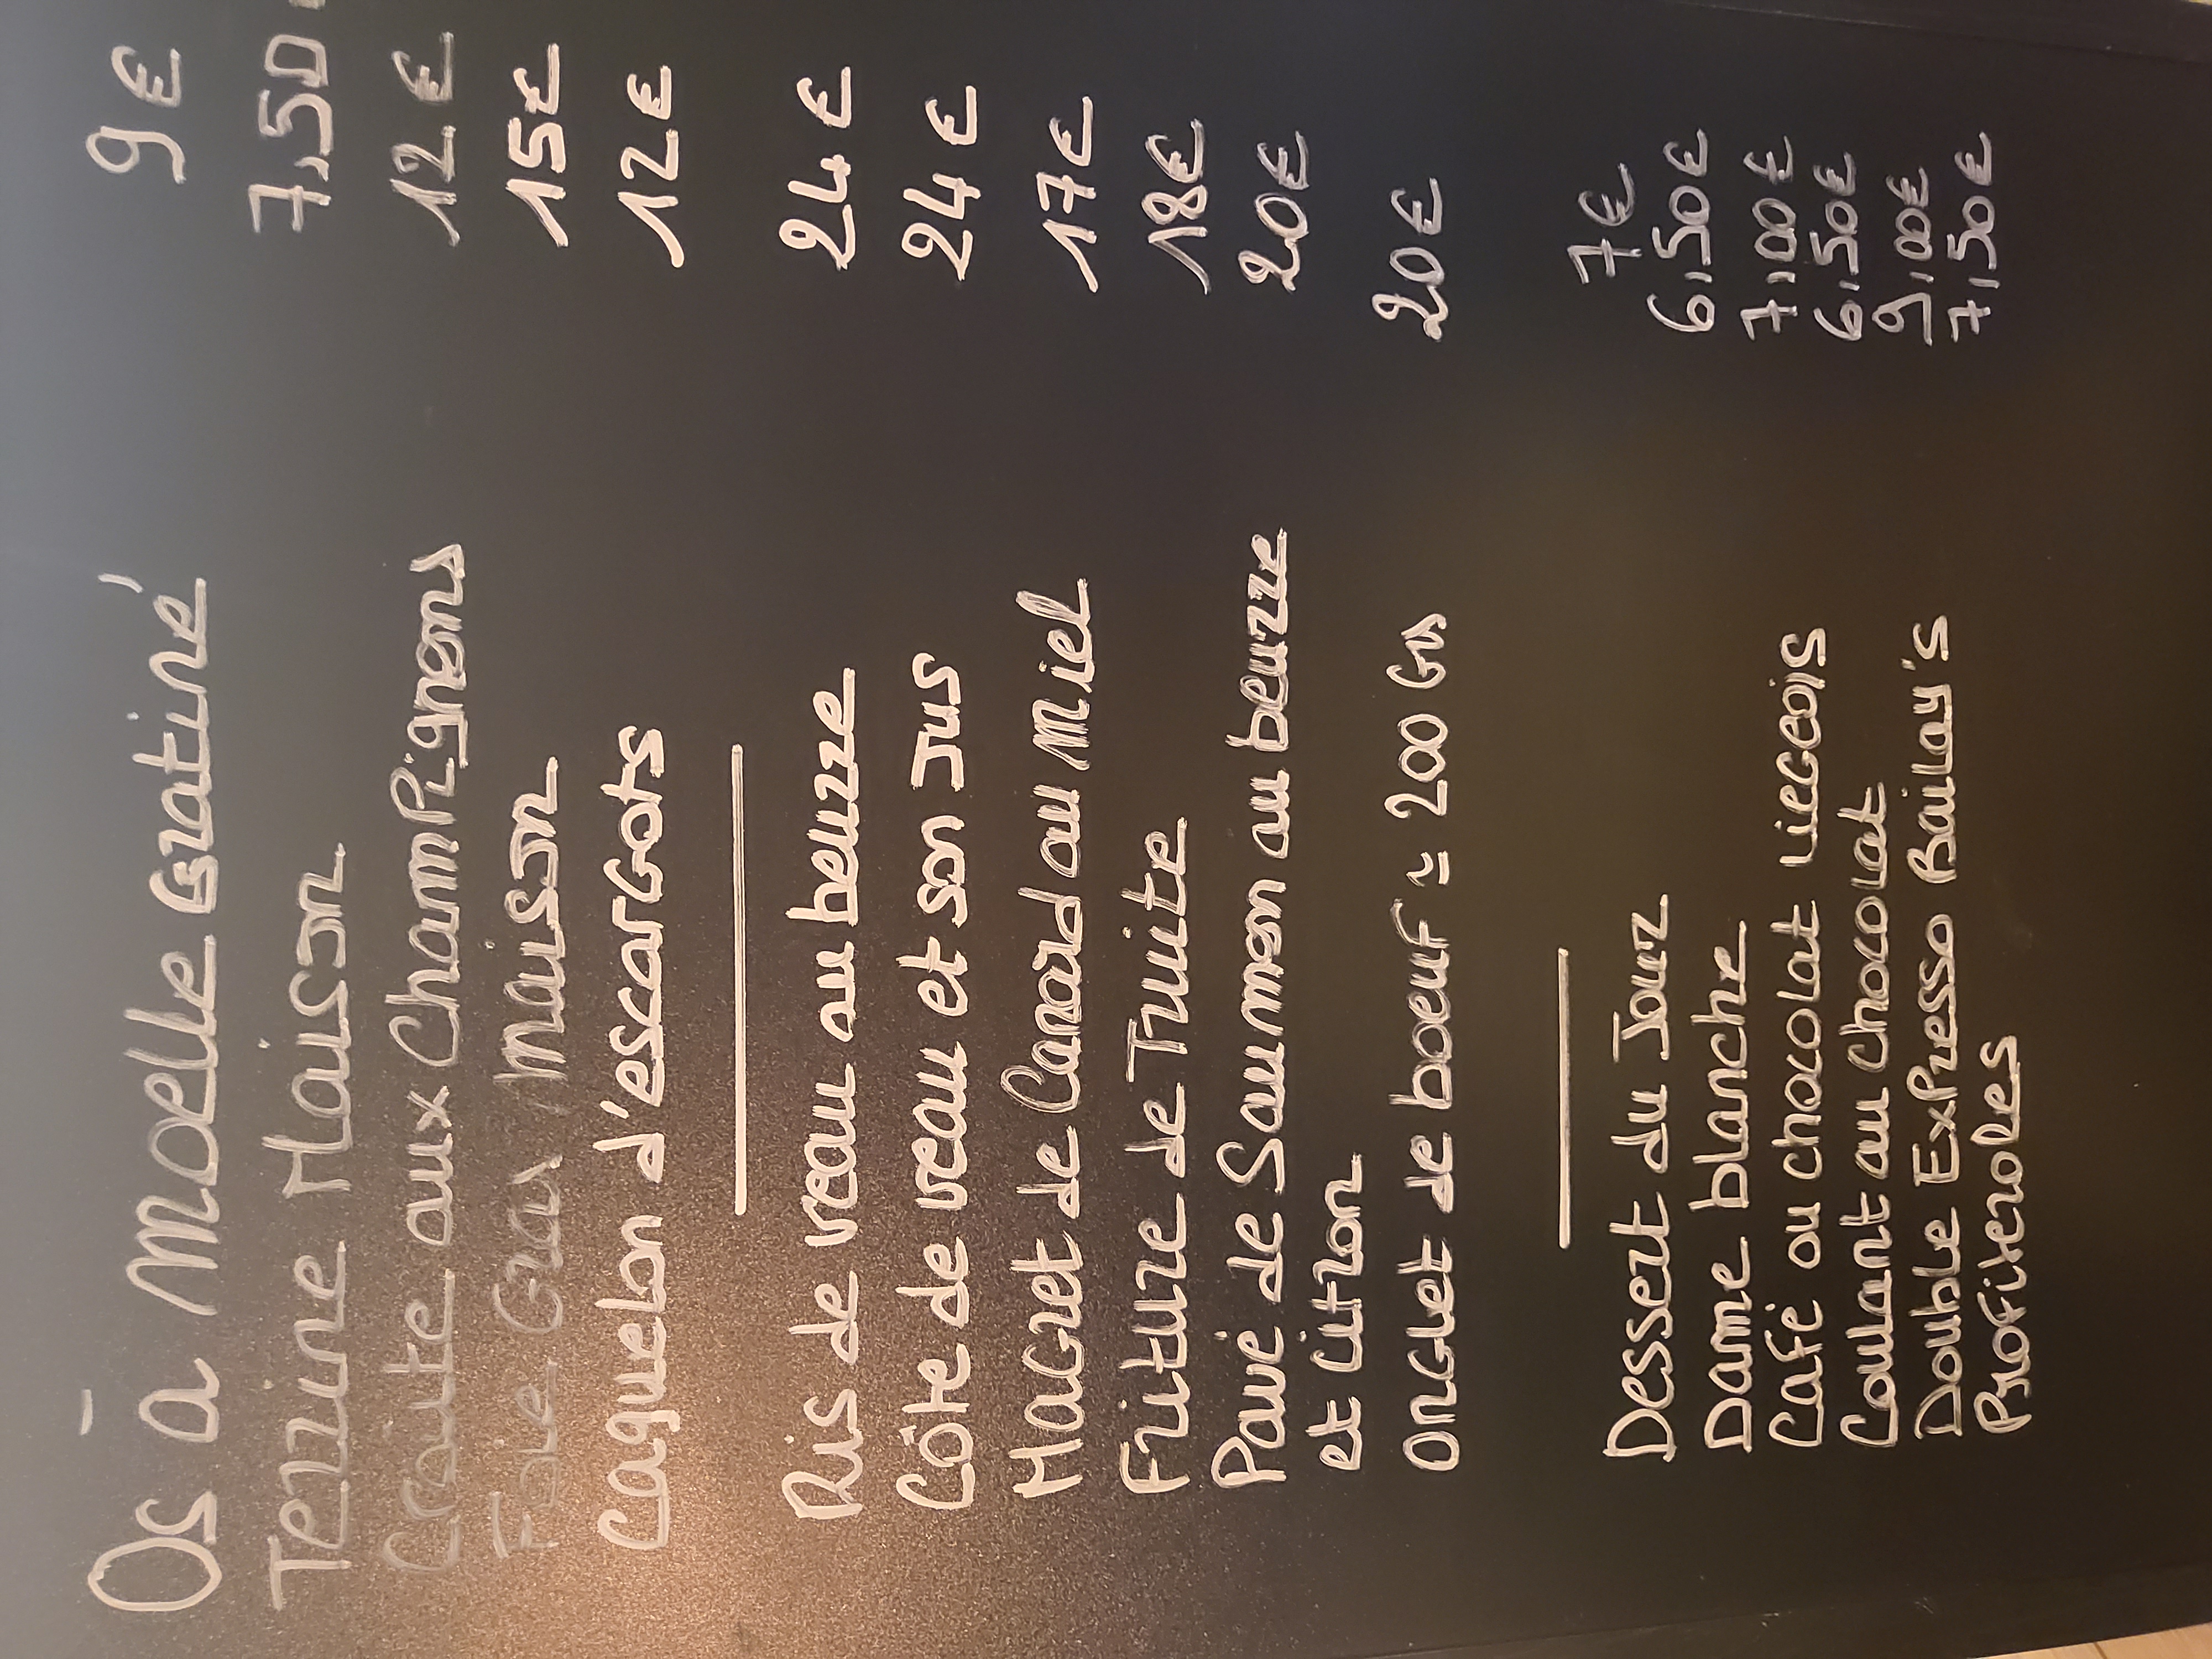 Os à Moelle Gratiné 9 €
Terrine Maison 7,50
Croûte aux Champignons 12 €
Foie Gras Maison 15 €
Caquelon d'escargots 12 €
Ris de veau au beurre 24 €
Côte de veau et son Jus 24 €
Magret de Canard au Miel 17 €
Friture de Truite 18 €
Pavé de Saumon au beurre 20 €
et citron
Onglet de boeuf ≃ 200 Grs 20 €
Dessert du Jour 7 €
Dame blanche 6,50 €
Café ou chocolat Liegeois 7,00 €
Coulant au chocolat 6,50 €
Double Expresso Bailay's 9,00 €
Profiteroles 7,50 €